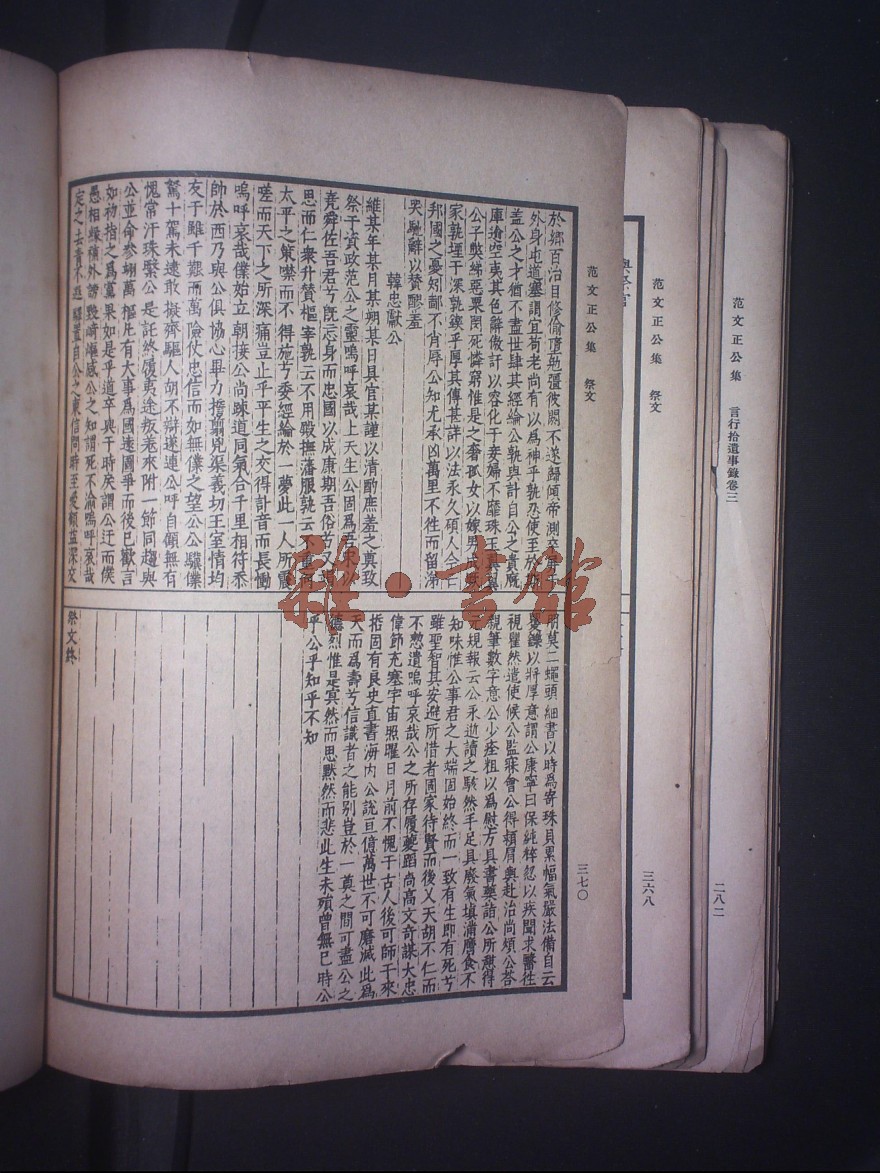 范文正公集　祭文
於鄉百治目修偷墮勉彊彼閼不遂歸傾帝測交解于
外身屯道塞謂宜苟老尚有以為神乎孰忍使至於斯
蓋公之才猶不盡世肆其經綸公孰與計自公之貴廐
庫逾空夷其色辭傲訐以容化于妾婦不靡珠玉翼翼
公子獘綈惡粟閔死憐窮惟是之奢孤女以嫁男
家孰堙于深孰鍥乎厚其傳其詳以法永久碩人今亡
邦國之憂矧鄙不肖辱公知尤承凶萬里不徃而留涕
哭馳辭以贊醪羞
韓忠獻公
維某年某月某朔某日具官某謹以清酌庶羞之奠致
祭于資政范公之靈嗚呼哀哉上天生公固為吾宋以
堯舜佐吾君兮既忘身而忠國以成康期吾俗兮又竭
思而仁衆升贊樞宰孰云不用殿撫藩服孰云不重何
太平之策噤而不得施兮委經綸於一夢此一人所震
嗟而天下之所深痛豈止乎平生之交得訃音而長慟
嗚呼哀哉僕始立朝接公尚踈道同氣合千里相符忝
帥於西乃與公俱恊心畢力擔翦兇渠義切王室情均
友于雖千艱而萬險仗忠信而如無僕之望公公驥僕
駑十駕未遠敢擬齊驅人胡不辯遂連公呼自顧無有
愧常汗珠繄公是託終履夷途叛羌來附一節同趨與
公並命参翊萬樞凡有大事為國遠圖爭而後已歡言
如初指之為黨果如是乎道卒與干時戾謂公迂而僕
愚相緣補外謗毀崎嶇感公之知謂死不渝嗚呼哀哉
定之去青不遥驛置自公之東信問時至愛顧益深交
朋莫二蠅頭細書以時為寄珠貝累幅氣嚴法備自云
矍鑠以將厚意謂公康寧曰保純粹忽以疾聞求醫徃
視瞿然遣使候公監寐會公得潁肩輿赴治尚煩公荅
親筆數字意公少痊粗以為慰方具書藥詣公所憩得
規報云公永逝讀之駭然手足具廢氣填滿膺食不
知味惟公事君之大端固始終而一致有生即有死兮
雖聖智其安避所借者國家待賢而後乂天胡不仁而
不憖遺嗚呼哀哉公之所存履夔蹈尚高文奇謀大忠
偉節充塞宇宙照曜日月前不愧于古人後可師于來
括固有良史直書海内公說亘億萬世不可磨滅此為
天而為壽兮信識者之能別豈於一奠之間可盡公之
德烈惟是冥然而思黙然而悲此生未殞曾無已時公
乎公乎知乎不知
祭文終
三七〇
范文正公集　祭文
三六八
范文正公集　言行拾遺事錄卷三
二八二
雜·書館